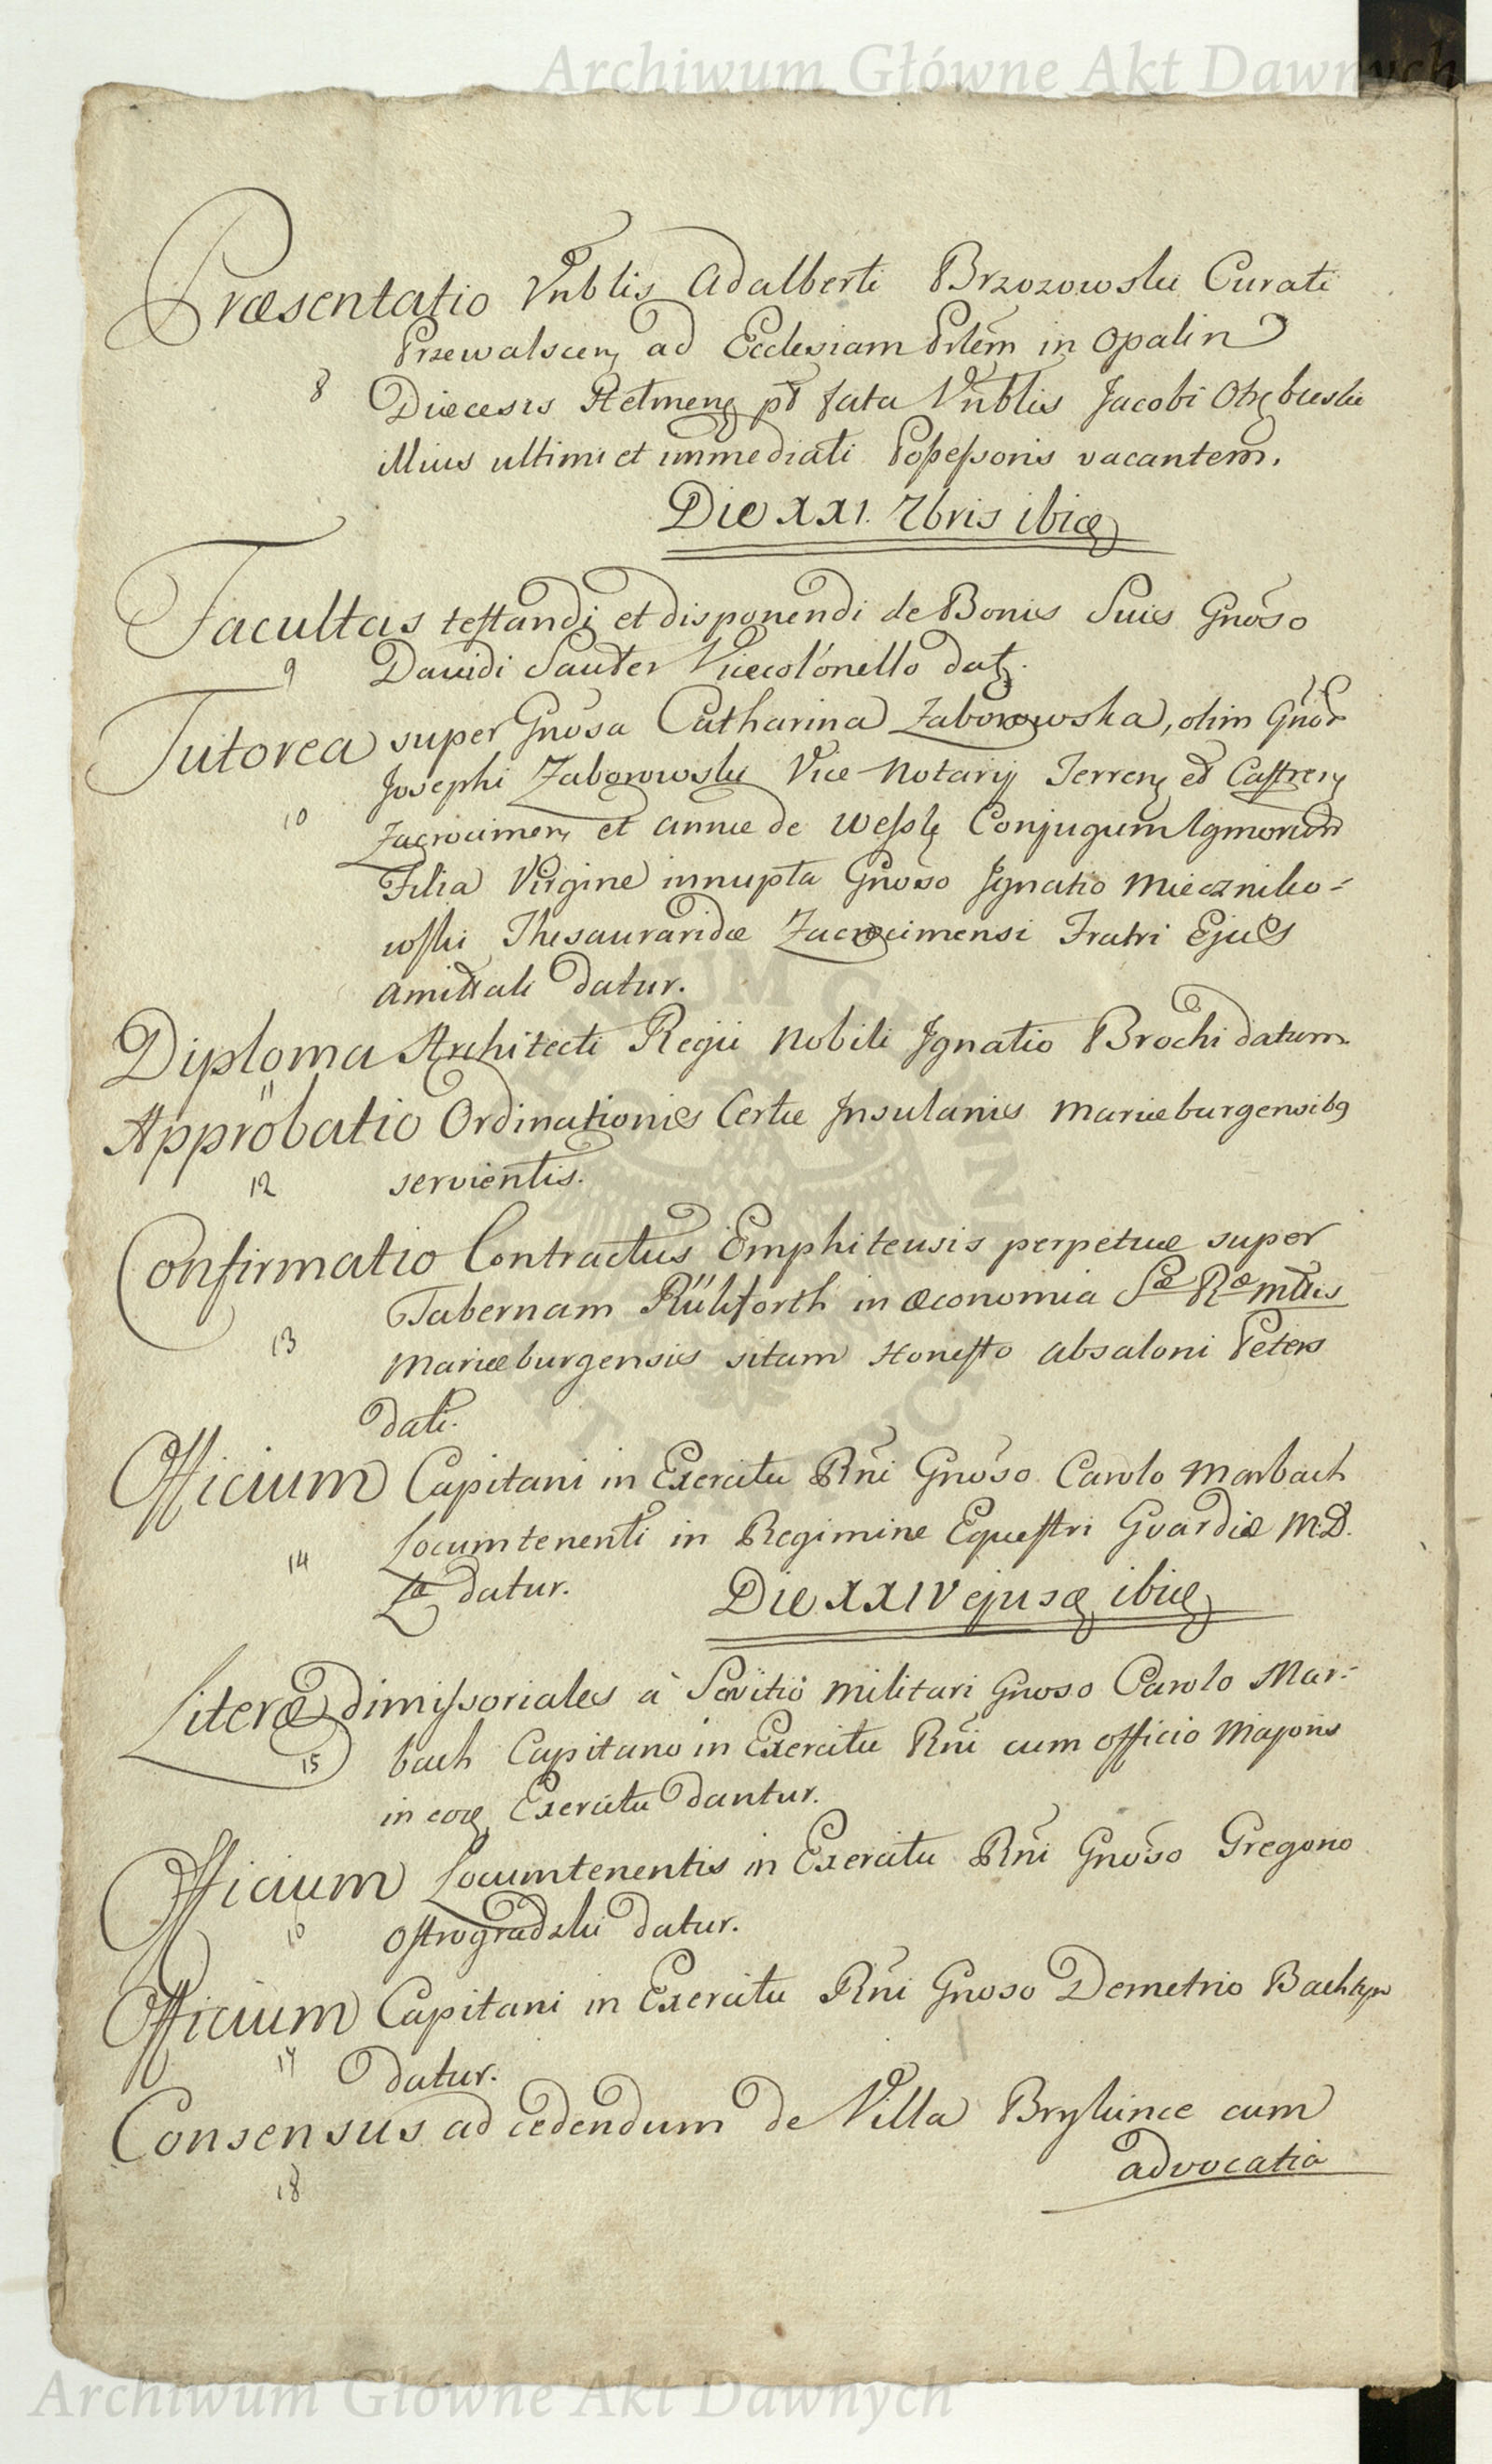 Archiwum Główne Akt Dawnych
Præsentatio Vnblis Adalberti Brzozowski Curati
Przewalscen, ad Ecclesiam Prlem in Opalin
8 Diæcesis Helmen, pt fata Vnblis Jacobi
illius ultimi et immediati Poßeßoris vacantem.
Die XXI. 7bris ibid
Facultas testandi et disponendi de Bonis Suis Gnoso
9 Davidi Sauter Vicecol'onello dat.
Tutorea super Gnosa Catharina Zaborowska, olim Gnor
Josephi Zaborowski Vice Notarij Terren, et Castren,
10 Zacrocimen, et Annæ de Weßle Conjugum lgmorum
Filia Virgine innupta Gnoso Ignatio Mieczniko=
wski Thesauraridæ Zacrocimensi Fratri Ejus
Amittali datur.
Diploma Architecti Regii Nobili Ignatio Brochi datum
11
Approbatio Ordinationis Certæ Insulanis Mariæburgensibg
12 servientis.
Confirmatio Contractus Emphiteusis perpetuæ super
Tabernam Rükforth in œconomia Sæ Ræ Mttis
13 Mariæburgensis sitam Honesto Absaloni Peters
dati.
Officium Capitani in Exercitu Rni Gnoso Carolo Marbach
Locumtenenti in Regimine Equestri Guardiæ M.D.
14 Læ datur. Die XXIV ejusd, ibid,
Literæ dimißoriales à Servitio Militari Gnoso Carolo Mar=
15 bach Capitano in Exercitu Rni cum officio Majoris
in eod, Exercitu dantur.
Officium Locumtenentis in Exercitu Rni Gnoso Gregorio
16 Ostrogradzki datur.
Officium Capitani in Exercitu Rni Gnoso Demetrio
17 datur.
Consensus ad cedendum de Villa Brylince cum
advocatia
18
Archiwum Główne Akt Dawnych